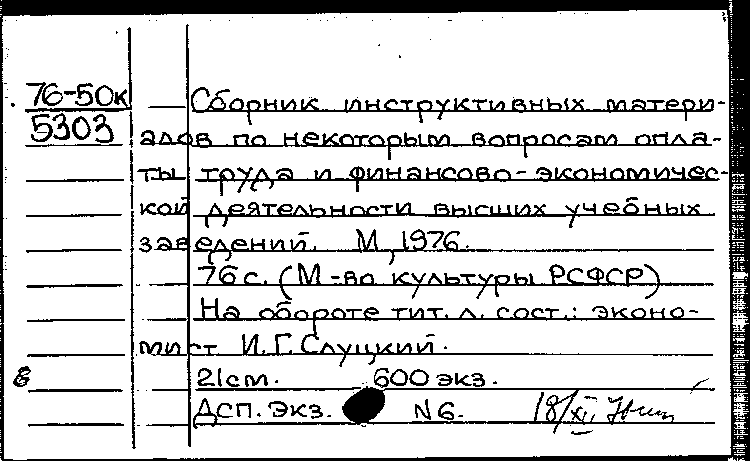 76-50к
5303
Сборник инструктивных матери-
алов по некоторым вопросам опла-
ты труда и финансово-экономичес-
кой деятельности высших учебных
заведений. М., 1976.
76 с. (М-во культуры РСФСР)
На обороте тит. л. сост.: эконо-
мист И.Г. Слуцкий.
21 см. 600 экз.
Дсп. Экз. N 6. 18/XII